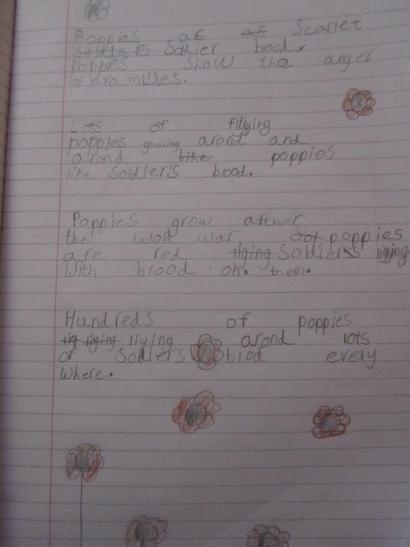 Poppies ar as Scarlet
Soldier blood.
poppies show the anger
Lots of fllying
poppies gowing arond and
arond like poppies
like Soldier's blood.
Poppies grow afther
the wolt war Sof poppies
are red liging Soldiers liging
with blood on them.
Hundreds of poppies
lig liging liying arond lots
of Soldiers blod every
where.